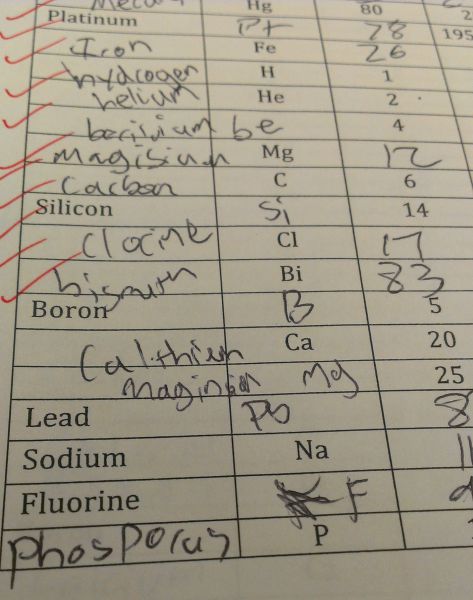 Hg 80 2
Platinum Pt 78 195
Iron Fe 26
hydrogen H 1
helium He 2
berilium be 4
Magisium Mg 12
Carbon C 6
Silicon Si 14
Clorine Cl 17
bismuth Bi 83
Boron B 5
Calthium Ca 20
maginisin Mg 25
Lead Pb 8
Sodium Na 11
Fluorine F
Phosporus P